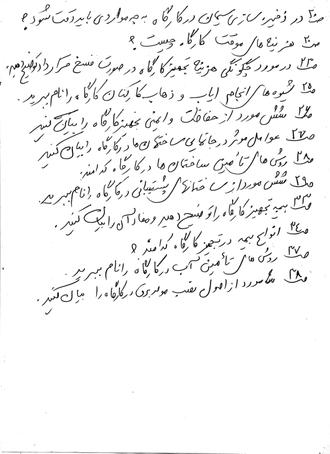 ص۲۰ در ذخیره سازی سیمان در کارگاه به چه مواردی باید دقت شود؟
ص۲۰ هزینه های موقت کارگاه چیست؟
ص۲۳ در مورد چگونگی هزینه تجهیز کارگاه در صورت فسخ قرارداد توضیح دهید.
ص۲۵ شیوه های انجام ایاب و ذهاب کارکنان کارگاه را نام ببرید.
ص۲۶ شش مورد از حفاظت و ایمنی تجهیز کارگاه را بیان کنید
ص۲۷ عوامل موثر در جانمایی ساختمان ها در کارگاه را بیان کنید
ص۲۸ روش های تأمین ساختمان ها در کارگاه کدامند:
ص۲۹ شش مورد از ساختمانهای پشتیبانی در کارگاه را نام ببرید.
بیمه تجهیز کارگاه را توضیح دهید و مفاد آن را بیان کنید.
انواع بیمه در تجهیز کارگاه کدامند؟
ص۳۷ روش های تأمین آب در کارگاه را نام ببرید.
ص۳۸ مورد از اصول نصب موتور برق در کارگاه را بیان کنید.